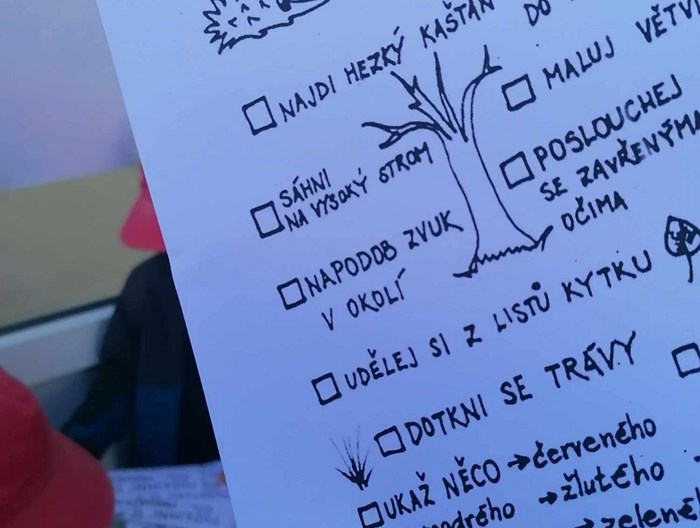 NAJDI HEZKÝ KAŠTAN
DO
MALUJ VĚTVI
SÁHNI
NA VYSOKÝ STROM
POSLOUCHEJ
SE ZAVŘENÝMA
OČIMA
NAPODOB ZVUK
V OKOLÍ
UDĚLEJ SI Z LISTŮ KYTKU
DOTKNI SE TRÁVY
UKAŽ NĚCO → červeného
modrého → žlutého →
→ zelené